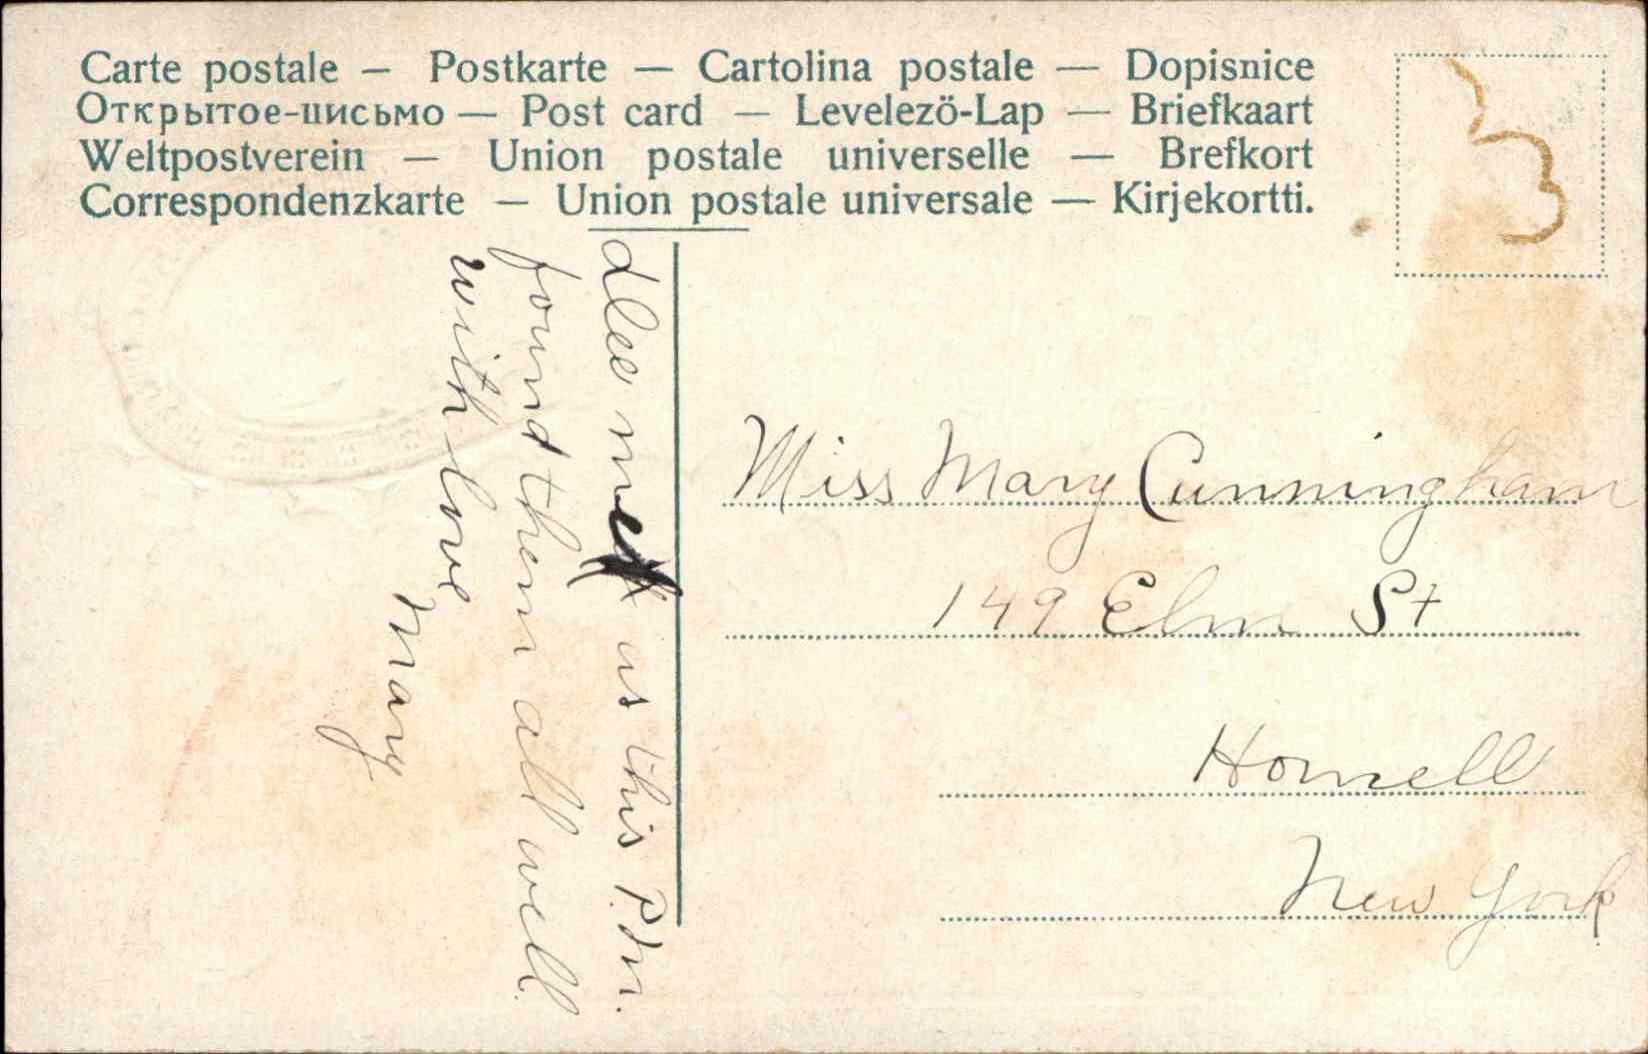 Carte postale — Postkarte — Cartolina postale — Dopisnice
Открытое-письмо — Post card — Levelezö-Lap — Briefkaart
Weltpostverein — Union postale universelle — Brefkort
Correspondenzkarte — Union postale universale — Kirjekortti.
met us this P.m.
found them all well
with love
Mary
Miss Mary Cunningham
149 Elm St
Hornell
New York